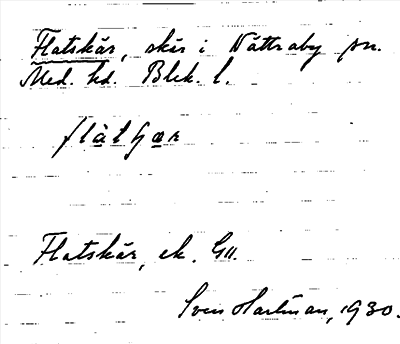 Flatskär, skär i Nättraby sn.
Med. hd. Blek. l.
flàtʃær
Flatskär, ek. G11.
Sven Hartman, 1930.